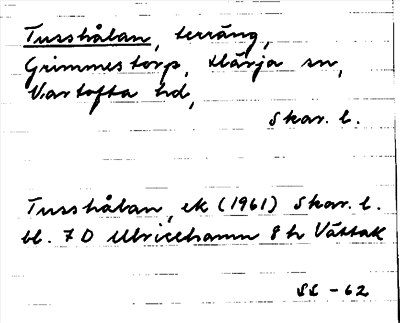 Tusshålan, terräng,
Grimmestorp, Härja sn,
Vartofta hd,
Skar. l.
Tusshålan, ek (1961) Skar. l.
bl. 7 D Ulricehamn 8 h Vättak
SS -62